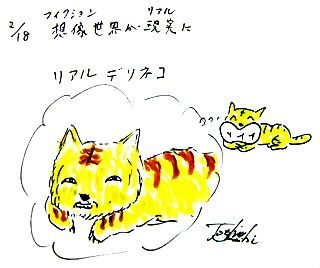 フィクション　リアル
2/18 想像世界が現実に
リアルデリネコ